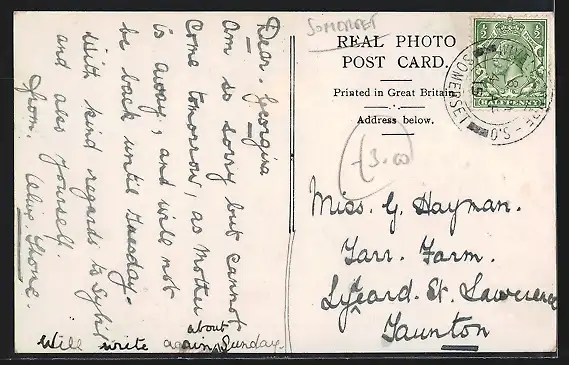 Dear. Georgina
Am so sorry but cannot
come tomorrow, as Mother
is away, and will not
be back until Tuesday.
With kind regards to Sybil
and also yourself.
from. Olive.
about
Will write again Sunday.
SOMERSET
REAL PHOTO
POST CARD.
Printed in Great Britain
Address below.
£3.00
Miss. G. Hayman.
Tarr. Farm.
Lydeard. St. Lawrence
Taunton
HALFPENNY
SOMERSET
S.O.